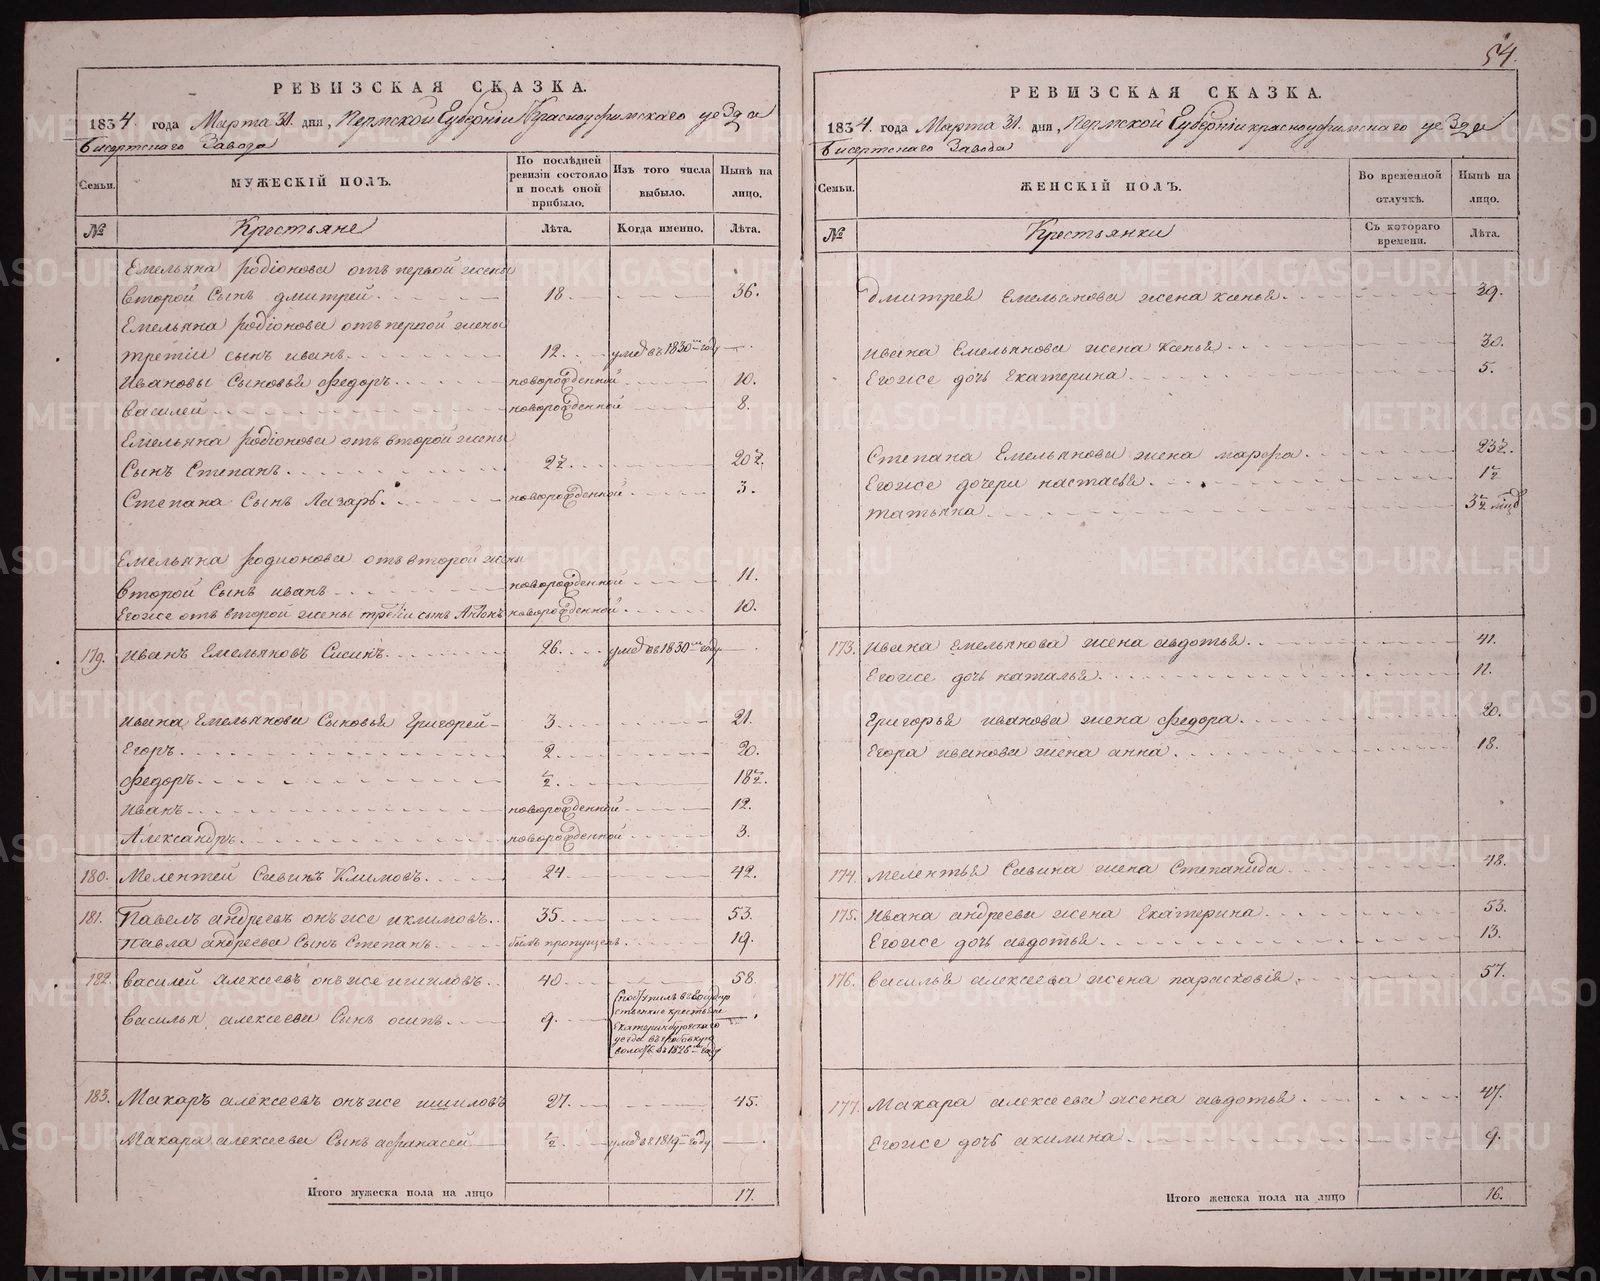 54.
РЕВИЗСКАЯ СКАЗКА.
1834. года Марта 31. дня, Пермской Губернiи Красноуфимскаго уезда
Бисертскаго Завода
Семьи. МУЖЕСКIЙ ПОЛЪ. По послѣдней ревизiи состояло и послѣ оной прибыло. Изъ того числа выбыло. Нынѣ на лицо.
№ Крестьяне Лѣта. Когда именно. Лѣта.
Емельяна родiонова отъ первой жены
второй Сынъ дмитрей 18 36.
Емельяна родiонова отъ первой жены
третiи сынъ иванъ 12. умеръ въ 1830 году
Ивановы Сыновья федоръ новорожденной 10.
василей новорожденной 8.
Емельяна родiонова отъ второй жены
Сынъ Степанъ 2½ 20½.
Степана Сынъ Лазарь новорожденной 3.
Емельяна родионова отъ второй жены
второй Сынъ иванъ новорожденной 11.
Егоже отъ второй жены третiи сынъ Антонъ новорожденной 10.
179. иванъ Емельяновъ Сисинъ 26. умеръ въ 1830 году
ивана Емельянова Сыновья Григорей 3. 21.
Егоръ 2. 20.
федоръ ½ 18½.
иванъ новорожденной 12.
Александръ новорожденной 3.
180. Мелентей Савинъ Климовъ 24 42.
181. Павелъ андреевъ онъ же иклимовъ 35. 53.
Павла андреева Сынъ Степанъ былъ пропущенъ 19.
182. василей алексеевъ онъ же ишиловъ 40 58.
васильи алексеева Сынъ осипъ 9. поступилъ въ государственные крестьяне Екатеринбургскаго уезда волость въ 1826 году
183. Макаръ алексеевъ онъ же ишиловъ 27. 45.
Макара алексеева Сынъ афанасей ½ умеръ в 1819 году
Итого мужеска пола на лицо 17.
РЕВИЗСКАЯ СКАЗКА.
1834. года Марта 31. дня, Пермской Губернiи красноуфимскаго уезда
бисертскаго Завода
Семьи. ЖЕНСКIЙ ПОЛЪ. Во временной отлучкѣ. Нынѣ на лицо.
№ Крестьянки Съ котораго времени. Лѣта.
дмитрея емельянова жена ксенья 39.
ивана Емельянова жена Ксенья 30.
Егоже дочь Екатерина 5.
Степана Емельянова жена марфа 23½.
Егоже дочери настасья 1½
татьяна 3½ мѣсяц
173. ивана Емельянова жена авдотья 41.
Егоже дочь наталья 11.
Григорья иванова жена федора 20.
Егора иванова жена анна 18.
174. мелентья Савина жена Степанида 48.
175. ивана андреева жена Екатерина 53.
Егоже дочь авдотья 13.
176. василья алексеева жена парасковiя 57.
177. Макара алексеева жена авдотья 47.
Егоже дочь акилина 9.
Итого женска пола на лицо 16.
METRIKI.GASO-URAL.RU